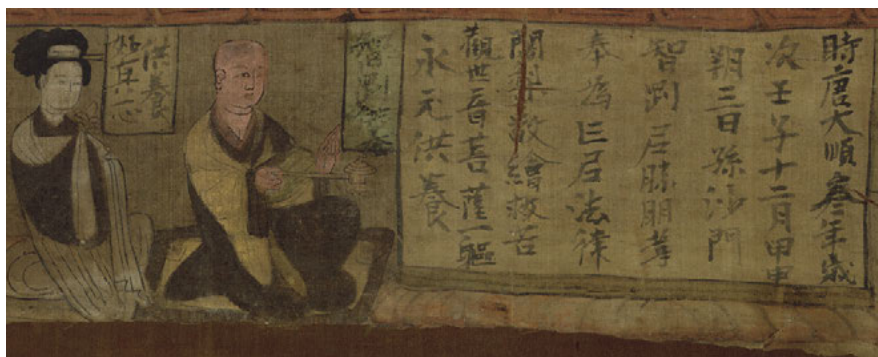 時唐大順叁年歲
次壬子十二月甲申
朔三日孫沙門
智剛尼勝明等
奉為亡尼法律
闍梨敬繪救苦
觀世音菩薩一軀
永充供養
智剛
供養
一心